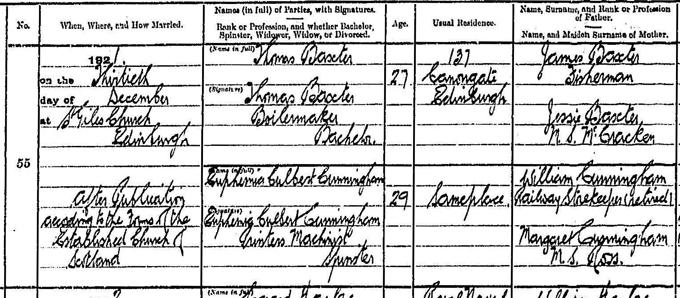 No.
When, Where, and How Married.
Names (in full) of Parties, with Signatures.
Rank or Profession, and whether Bachelor,
Spinster, Widower, Widow, or Divorced.
Age.
Usual Residence.
Name, Surname, and Rank or Profession
of Father.
Name, and Maiden Surname of Mother.
55
1921.
on the Thirtieth
day of December
at St Giles Church
Edinburgh
After Publication
according to the Forms of the
Established Church of
Scotland
(Name in full)
Thomas Baxter
(Signature)
Thomas Baxter
Boilermaker
Bachelor.
27
137
Canongate
Edinburgh
James Baxter
Fisherman
Jessie Baxter
M.S. McCracken
(Name in full)
Euphemia Culbert Cunningham
(Signature)
Euphemia Culbert Cunningham
Printers Machinist
Spinster
29
Same place.
William Cunningham
Railway Storekeeper (retired)
Margaret Cunningham
M.S. Ross.
(Name in full)